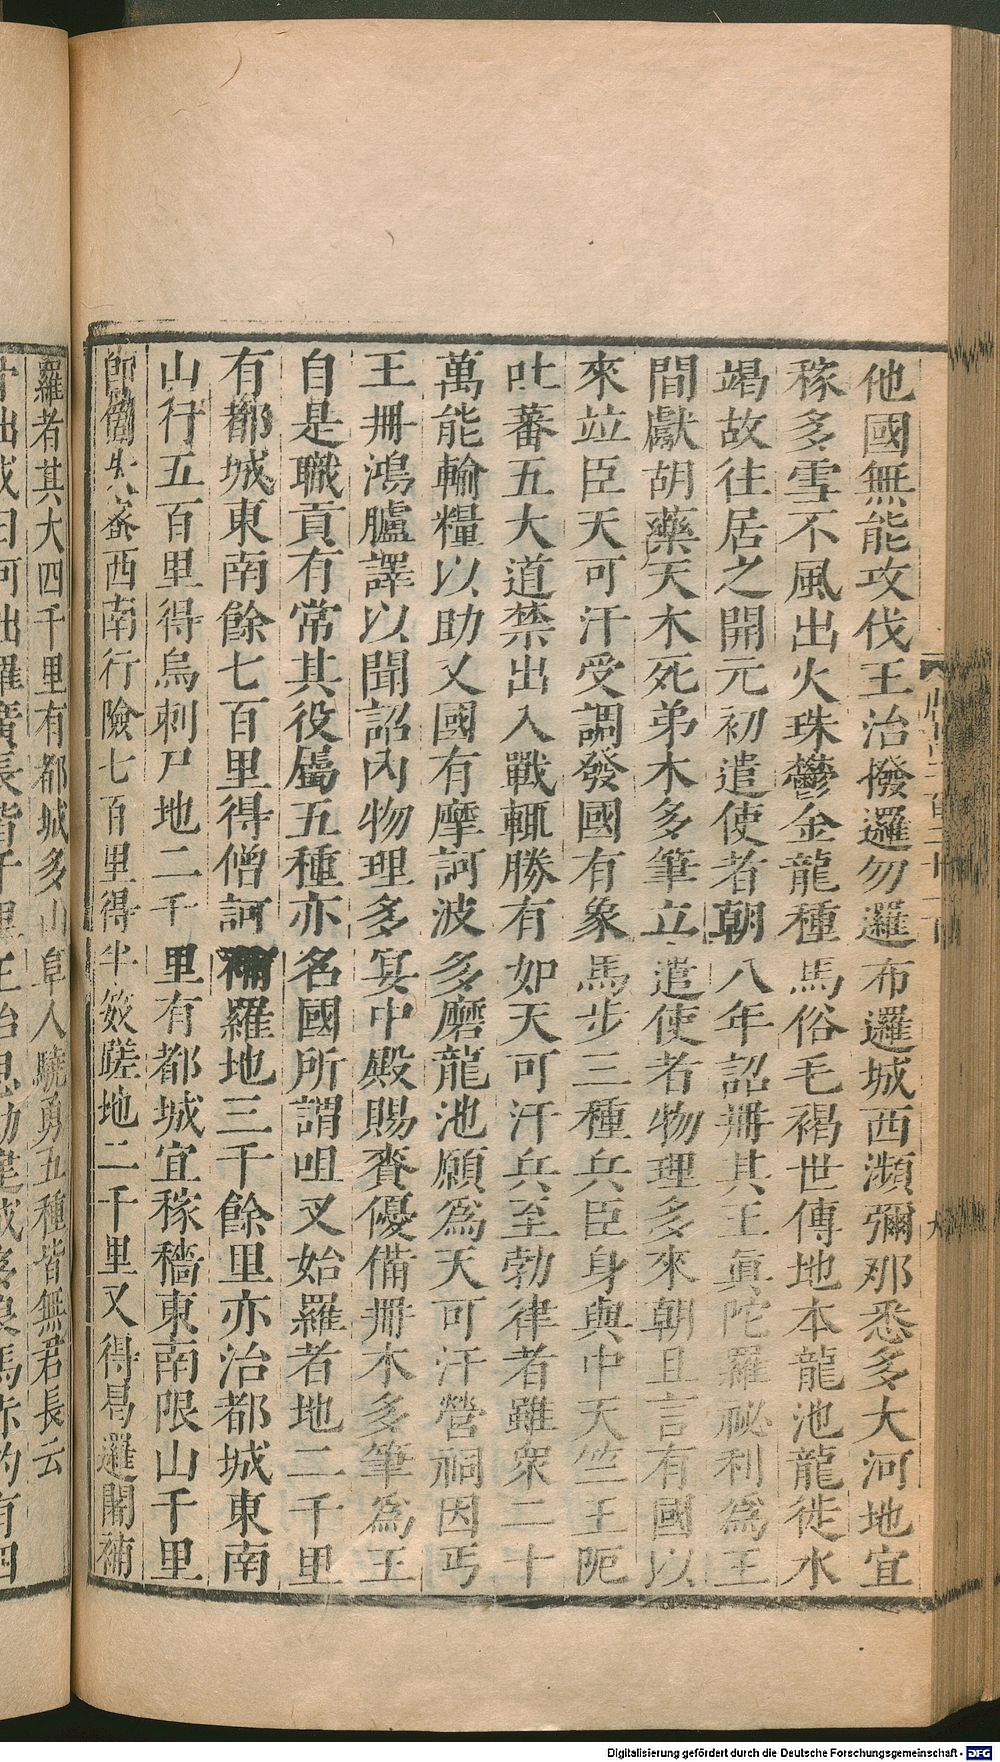 他國無能攻伐王治撥邏勿邏布邏城西瀕彌那悉多大河地宜
稼多雪不風出火珠鬱金龍種馬俗毛褐世傳地本龍池龍徙水
竭故往居之開元初遣使者朝八年詔冊其王眞陀羅祕利為王
間獻胡藥天木死弟木多筆立遣使者物理多來朝且言有國以
來竝臣天可汗受調發國有象馬步三種兵臣身與中天竺王阨
吐蕃五大道禁出入戰輒勝有如天可汗兵至勃律者雖眾二十
萬能輸糧以助又國有摩訶波多磨龍池願為天可汗營祠因丐
王冊鴻臚譯以聞詔內物理多宴中殿賜賚優備冊木多筆為王
自是職貢有常其役屬五種亦名國所謂咀叉始羅者地二千里
有都城東南餘七百里得僧訶補羅地三千餘里亦治都城東南
山行五百里得烏剌尸地二千里有都城宜稼穡東南限山千里
即箇失蜜西南行險七百里得半笯蹉地二千里又得曷邏闍補
羅者其大四千里有都城多山阜人驍勇五種皆無君長云
Digitalisierung gefördert durch die Deutsche Forschungsgemeinschaft - DFG